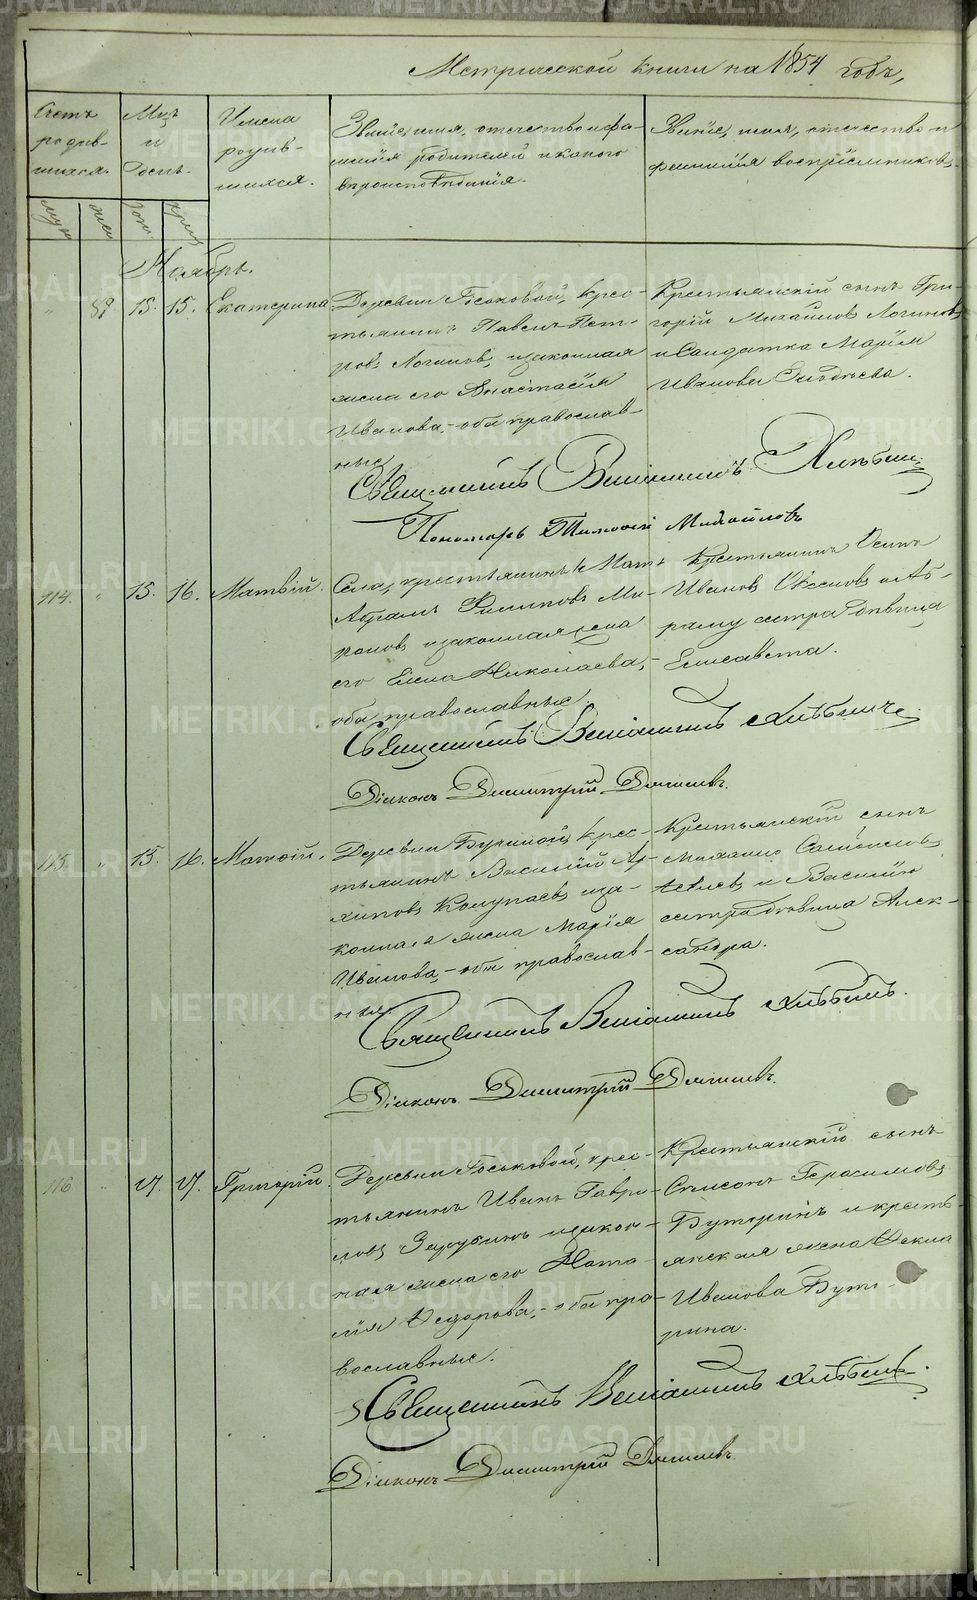 Метрической книги на 1854 годъ,
Счетъ родив-шихся.
Мцъ и День.
Имена родив-шихся.
Званіе, имя, отечество и фа-
милія родителей и какого
вѣроисповѣданія.
Званіе, имя, отечество и
фамилія воспріемниковъ.
муж. жен. рож. крещ.
Ноябрь.
89. 15. 15. Екатерина.
Деревни кре-
стьянинъ Павелъ Пет-
ровъ Логиновъ, и законная
жена его Анастасія
Иванова, - оба православ-
ные.
Крестьянскій сынъ Гри-
горій Михайловъ Логиновъ
и Солдатка Марія
Иванова
Священникъ Веніаминъ Хлѣбинъ
Пономарь Тимоѳей Михайловъ
114. " 15. 16. Матвій.
Села, крестьянинъ
Абрамъ Филиповъ Ми-
роновъ и законная жена
его Елена Николаева, -
оба православные
Крестьянинъ Осипъ
Ивановъ и Аб-
раму сестра дѣвица
Елисавета.
Священникъ Веніаминъ Хлѣбинъ.
Діаконъ Димитрій
115. " 15. 16. Матвій.
Деревни крес-
тьянинъ Василій Ар-
хиповъ Колупаевъ и за-
конная жена Марія
Иванова, - оба православ-
ные.
Крестьянскій сынъ
и Василію
сестра дѣвица Алек-
сандра.
Священникъ Веніаминъ Хлѣбинъ.
Діаконъ Димитрій
116 " 17. 17. Григорій.
Деревни крес-
тьянинъ Иванъ Гаври-
ловъ Зарубинъ и закон-
ная жена его Ната-
лія Ѳедорова, - оба пра-
вославные.
Крестьянскій сынъ
Симеонъ Герасимовъ
Бутаринъ и кресть-
янская жена Ѳекла
Иванова Бута-
рина.
Священникъ Веніаминъ Хлѣбинъ.
Діаконъ Димитрій
METRIKI.GASO-URAL.RU